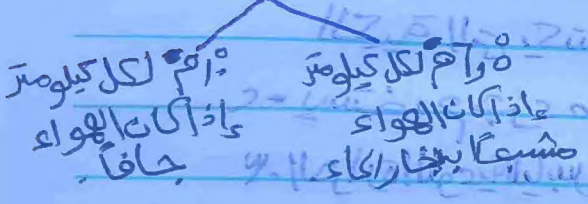 ٦٫٥ْم لكل كيلومتر
إذا كان الهواء
مشبعاً ببخار الماء.
١٠ْم لكل كيلومتر
إذا كان الهواء
جافاً.